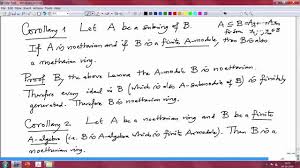 Corollary 1 Let A be a subring of B.
If A is noetherian and if B is a finite A-module, then B is also
a noetherian ring.
Proof By the above Lemma the A-module B is noetherian.
Therefore every ideal in B (which is also A-submodule of B) is finitely
generated. Therefore B is noetherian.
Corollary 2 Let A be a noetherian ring and B be a finite
A-algebra (i.e. B is A-algebra which is finite A-module). Then B is a
noetherian ring.